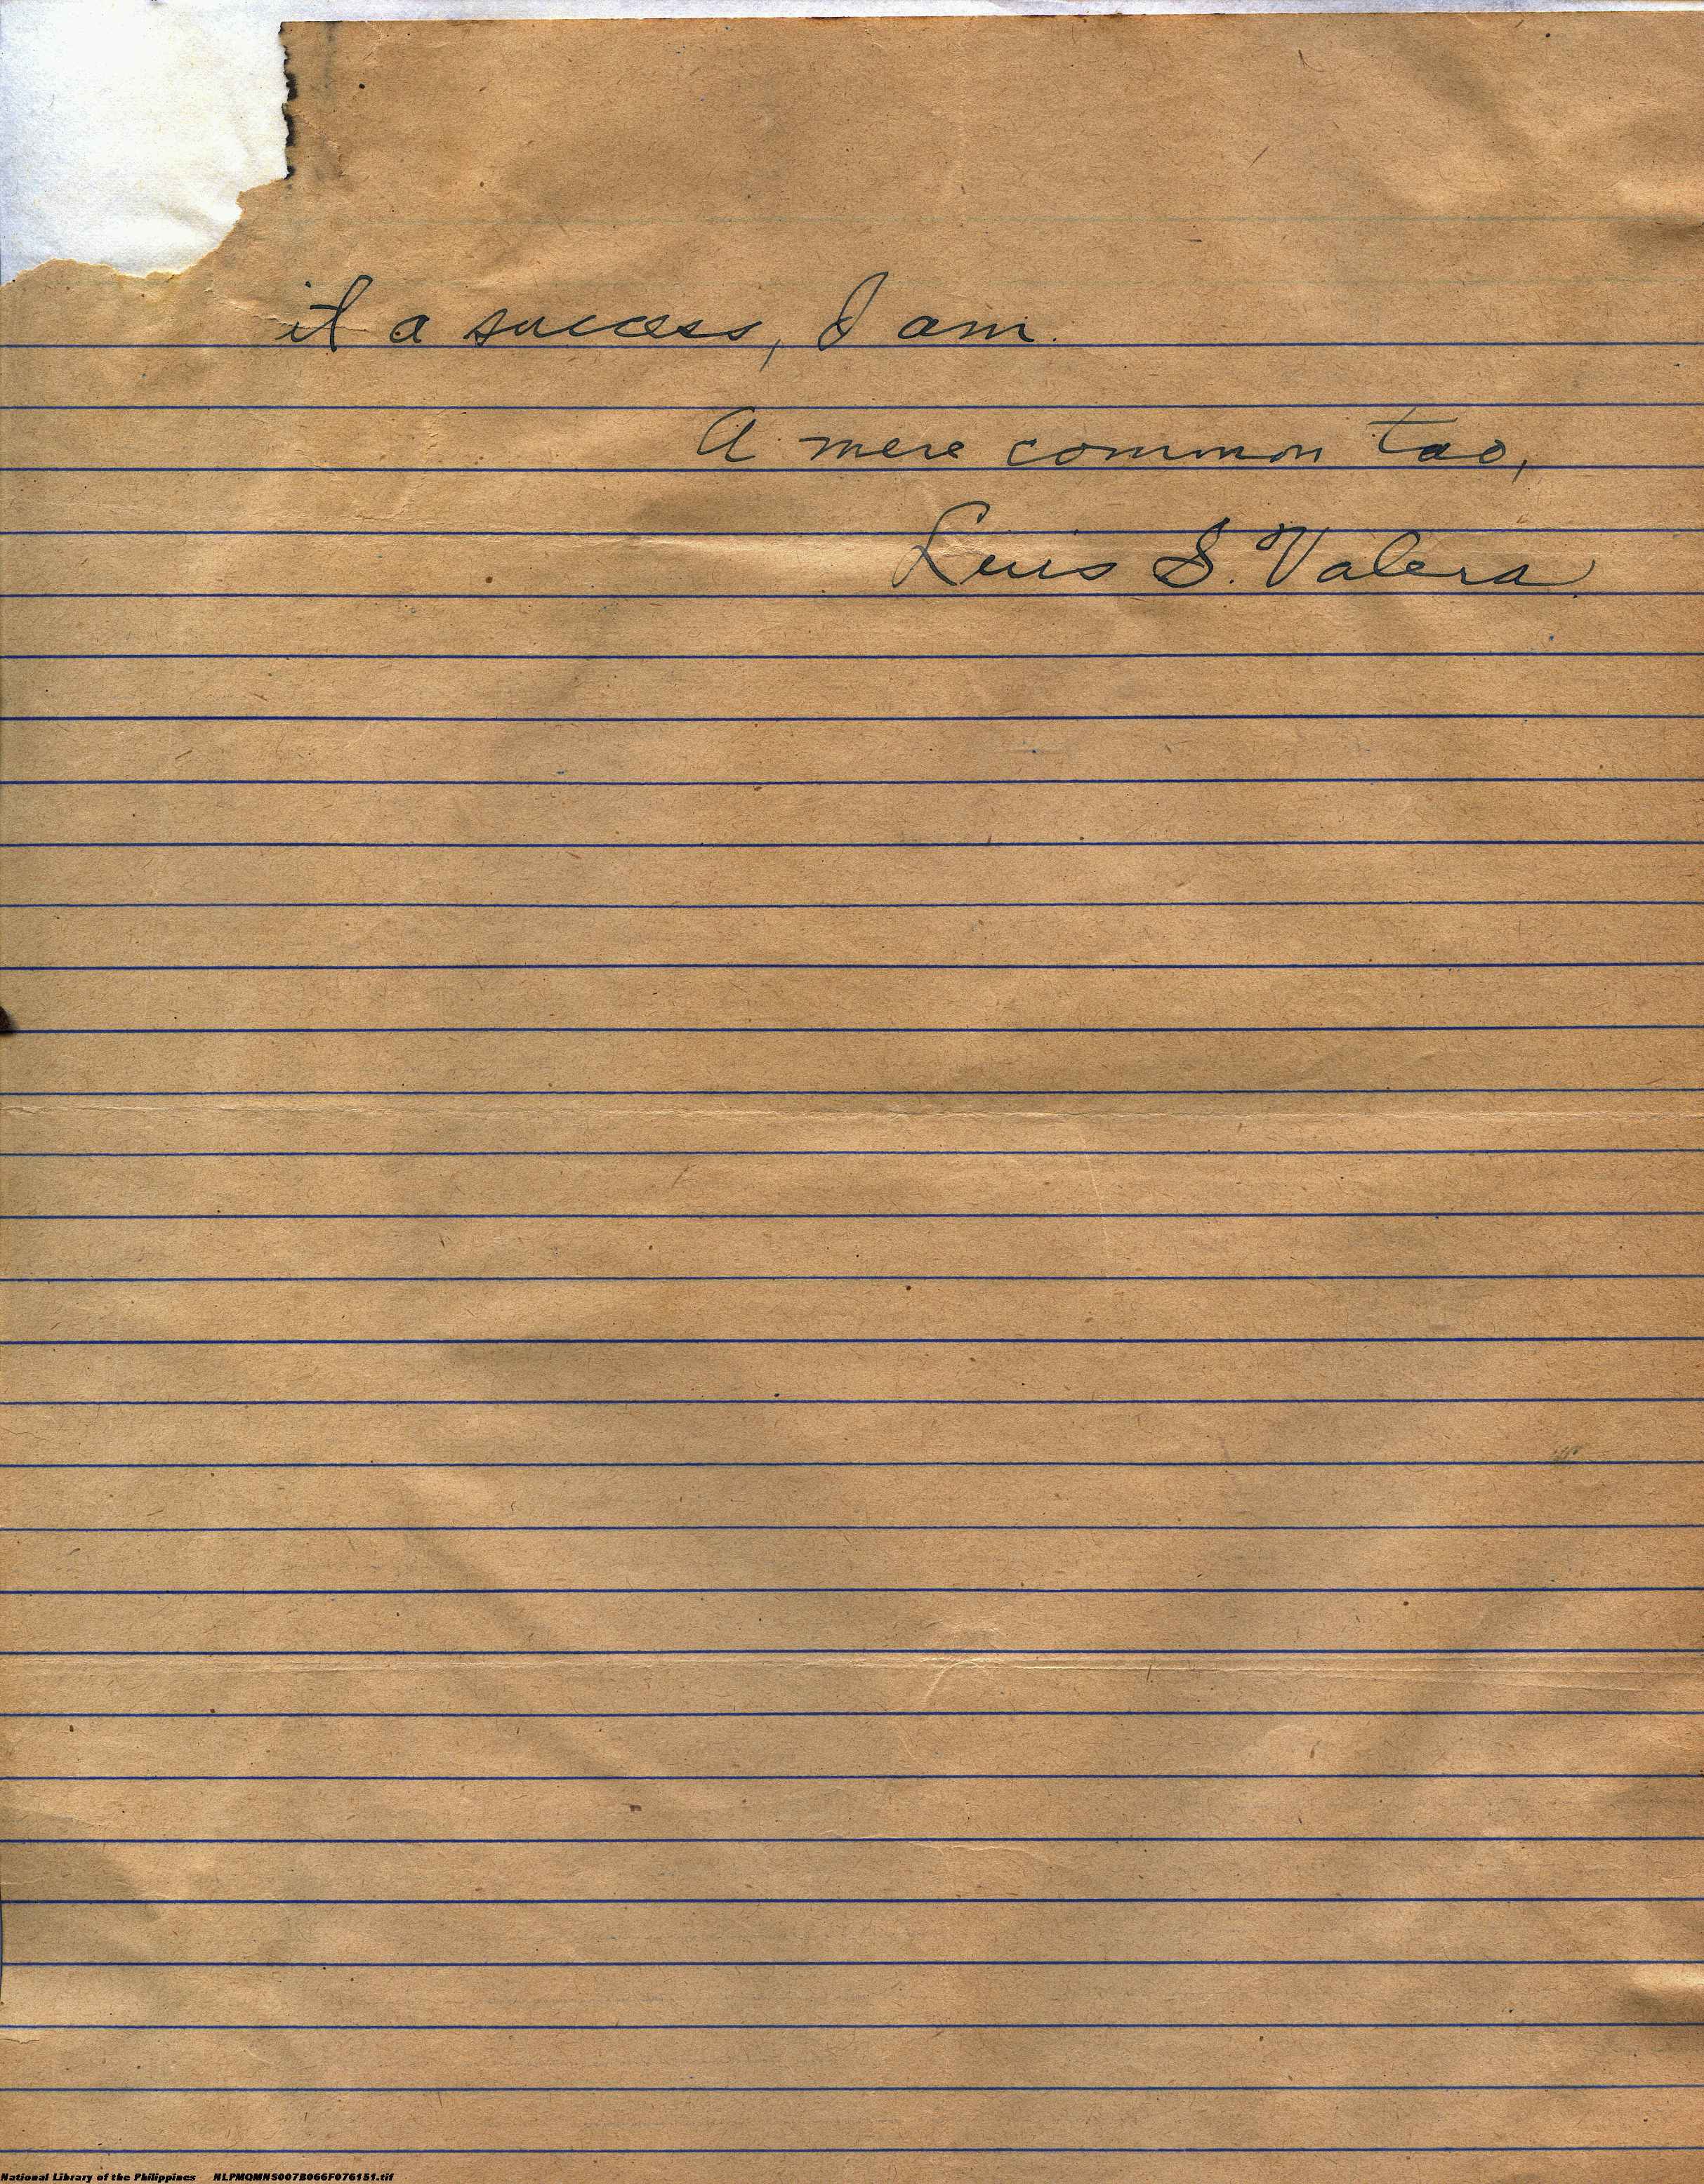 it a success, I am.
A mere common tao,
Luis S. Valera
National Library of the Philippines NLPMQMNS007B066F076151.tif